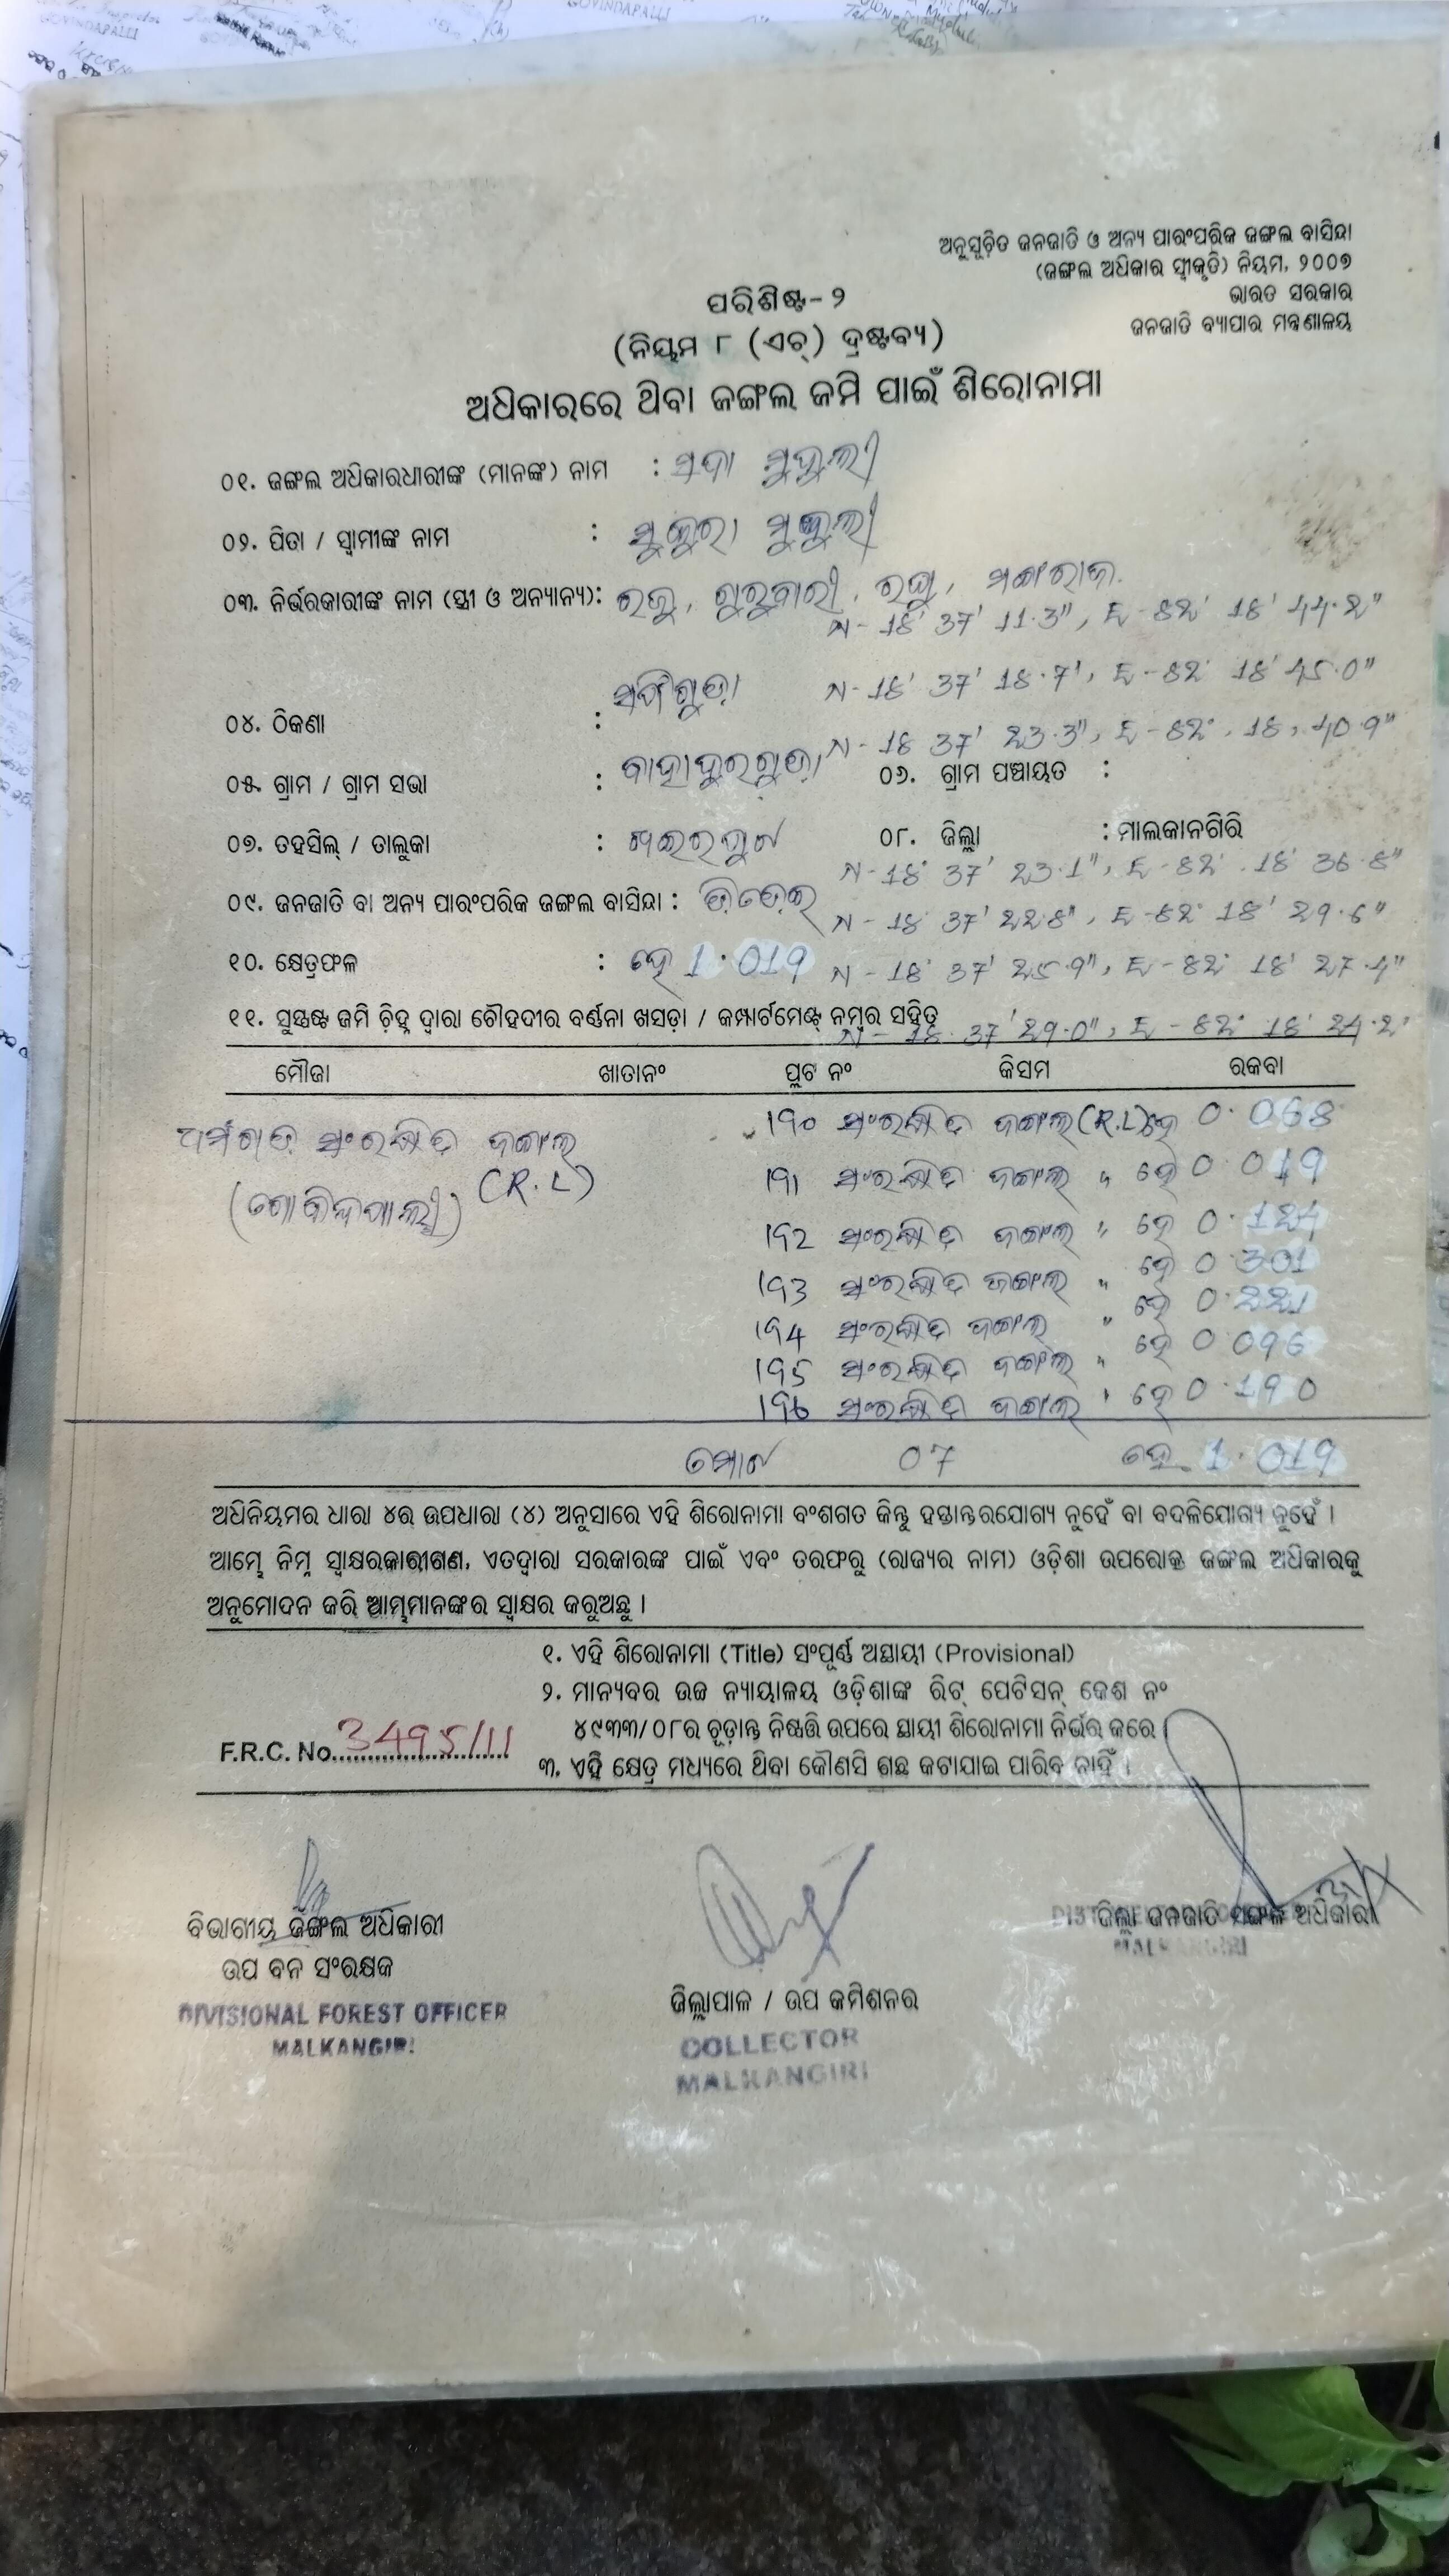 GOVINDAPALLI
ଅନୁସୂଚିତ ଜନଜାତି ଓ ଅନ୍ୟ ପାରଂପରିକ ଜଙ୍ଗଲ ବାସିନ୍ଦା
(ଜଙ୍ଗଲ ଅଧିକାର ସ୍ୱୀକୃତି) ନିୟମ, ୨୦୦୭
ଭାରତ ସରକାର
ଜନଜାତି ବ୍ୟାପାର ମନ୍ତ୍ରଣାଳୟ
ପରିଶିଷ୍ଟ-୨
(ନିୟମ ୮ (ଏଚ୍) ଦ୍ରଷ୍ଟବ୍ୟ)
ଅଧିକାରରେ ଥିବା ଜଙ୍ଗଲ ଜମି ପାଇଁ ଶିରୋନାମା
୦୧. ଜଙ୍ଗଲ ଅଧିକାରଧାରୀଙ୍କ (ମାନଙ୍କ) ନାମ : ସଦା ମୁଦୁଲୀ
୦୨. ପିତା / ସ୍ୱାମୀଙ୍କ ନାମ : ସୁକୁରା ମୁଦୁଲୀ
୦୩. ନିର୍ଭରକାରୀଙ୍କ ନାମ (ସ୍ତ୍ରୀ ଓ ଅନ୍ୟାନ୍ୟ): ରଜୁ, ଗୁରୁବାରୀ, ରଘୁ, ମଙ୍ଗରାଜ
N-18' 37' 11.3", E-82' 18' 44.2"
N-18' 37' 18.7', E-82' 18' 45.0"
୦୪. ଠିକଣା :
N-18 37' 23.3", E-82°, 18, 40.9"
୦୫. ଗ୍ରାମ / ଗ୍ରାମ ସଭା : ବାହାଦୁରଗୁଡ଼ା ୦୬. ଗ୍ରାମ ପଞ୍ଚାୟତ :
୦୭. ତହସିଲ୍ / ତାଲୁକା : ଖଇରପୁଟ ୦୮. ଜିଲ୍ଲା : ମାଲକାନଗିରି
N-18° 37' 23.1", E-82° 18' 36.8"
୦୯. ଜନଜାତି ବା ଅନ୍ୟ ପାରଂପରିକ ଜଙ୍ଗଲ ବାସିନ୍ଦା :
N-18° 37' 22.8", E-82° 18' 29.6"
୧୦. କ୍ଷେତ୍ରଫଳ : ହେ 1.019 N-18° 37' 25.9", E-82° 18' 27.4"
୧୧. ସୁସ୍ପଷ୍ଟ ଜମି ଚିହ୍ନ ଦ୍ୱାରା ଚୌହଦୀର ବର୍ଣ୍ଣନା ଖସଡ଼ା / କମ୍ପାର୍ଟମେଣ୍ଟ୍ ନମ୍ବର ସହିତ
N-18. 37' 29.0", E-82° 18' 24.2'
ମୌଜା ଖାତାନଂ ପ୍ଲଟ ନଂ କିସମ ରକବା
ସଂରକ୍ଷିତ ଜଙ୍ଗଲ 190 ସଂରକ୍ଷିତ ଜଙ୍ଗଲ (R.L) ହେ 0.068
(ଗୋବିନ୍ଦପାଲ୍ଲୀ) (R.L) 191 ସଂରକ୍ଷିତ ଜଙ୍ଗଲ " ହେ 0.019
192 ସଂରକ୍ଷିତ ଜଙ୍ଗଲ " ହେ 0.124
193 ସଂରକ୍ଷିତ ଜଙ୍ଗଲ " ହେ 0.301
194 ସଂରକ୍ଷିତ ଜଙ୍ଗଲ " ହେ 0.221
195 ସଂରକ୍ଷିତ ଜଙ୍ଗଲ " ହେ 0.096
196 ସଂରକ୍ଷିତ ଜଙ୍ଗଲ " ହେ 0.190
ମୋଟ 07 ହେ. 1.019
ଅଧିନିୟମର ଧାରା ୪ର ଉପଧାରା (୪) ଅନୁସାରେ ଏହି ଶିରୋନାମା ବଂଶଗତ କିନ୍ତୁ ହସ୍ତାନ୍ତରଯୋଗ୍ୟ ନୁହେଁ ବା ବଦଳିଯୋଗ୍ୟ ନୁହେଁ ।
ଆମ୍ଭେ ନିମ୍ନ ସ୍ୱାକ୍ଷରକାରୀଗଣ, ଏତଦ୍ୱାରା ସରକାରଙ୍କ ପାଇଁ ଏବଂ ତରଫରୁ (ରାଜ୍ୟର ନାମ) ଓଡ଼ିଶା ଉପରୋକ୍ତ ଜଙ୍ଗଲ ଅଧିକାରକୁ
ଅନୁମୋଦନ କରି ଆମ୍ଭମାନଙ୍କର ସ୍ୱାକ୍ଷର କରୁଅଛୁ ।
୧. ଏହି ଶିରୋନାମା (Title) ସଂପୂର୍ଣ୍ଣ ଅସ୍ଥାୟୀ (Provisional)
୨. ମାନ୍ୟବର ଉଚ୍ଚ ନ୍ୟାୟାଳୟ ଓଡ଼ିଶାଙ୍କ ରିଟ୍ ପେଟିସନ୍ କେଶ ନଂ
୪୯୩୩/୦୮ର ଚୂଡ଼ାନ୍ତ ନିଷ୍ପତ୍ତି ଉପରେ ସ୍ଥାୟୀ ଶିରୋନାମା ନିର୍ଭର କରେ ।
F.R.C. No. 3495/11
୩. ଏହି କ୍ଷେତ୍ର ମଧ୍ୟରେ ଥିବା କୌଣସି ଗଛ କଟାଯାଇ ପାରିବ ନାହିଁ ।
ବିଭାଗୀୟ ଜଙ୍ଗଲ ଅଧିକାରୀ
ଉପ ବନ ସଂରକ୍ଷକ
DIVISIONAL FOREST OFFICER
MALKANGIRI
ଜିଲ୍ଲାପାଳ / ଉପ କମିଶନର
COLLECTOR
MALKANGIRI
ଜିଲ୍ଲା ଜନଜାତି ମଙ୍ଗଳ ଅଧିକାରୀ
MALKANGIRI